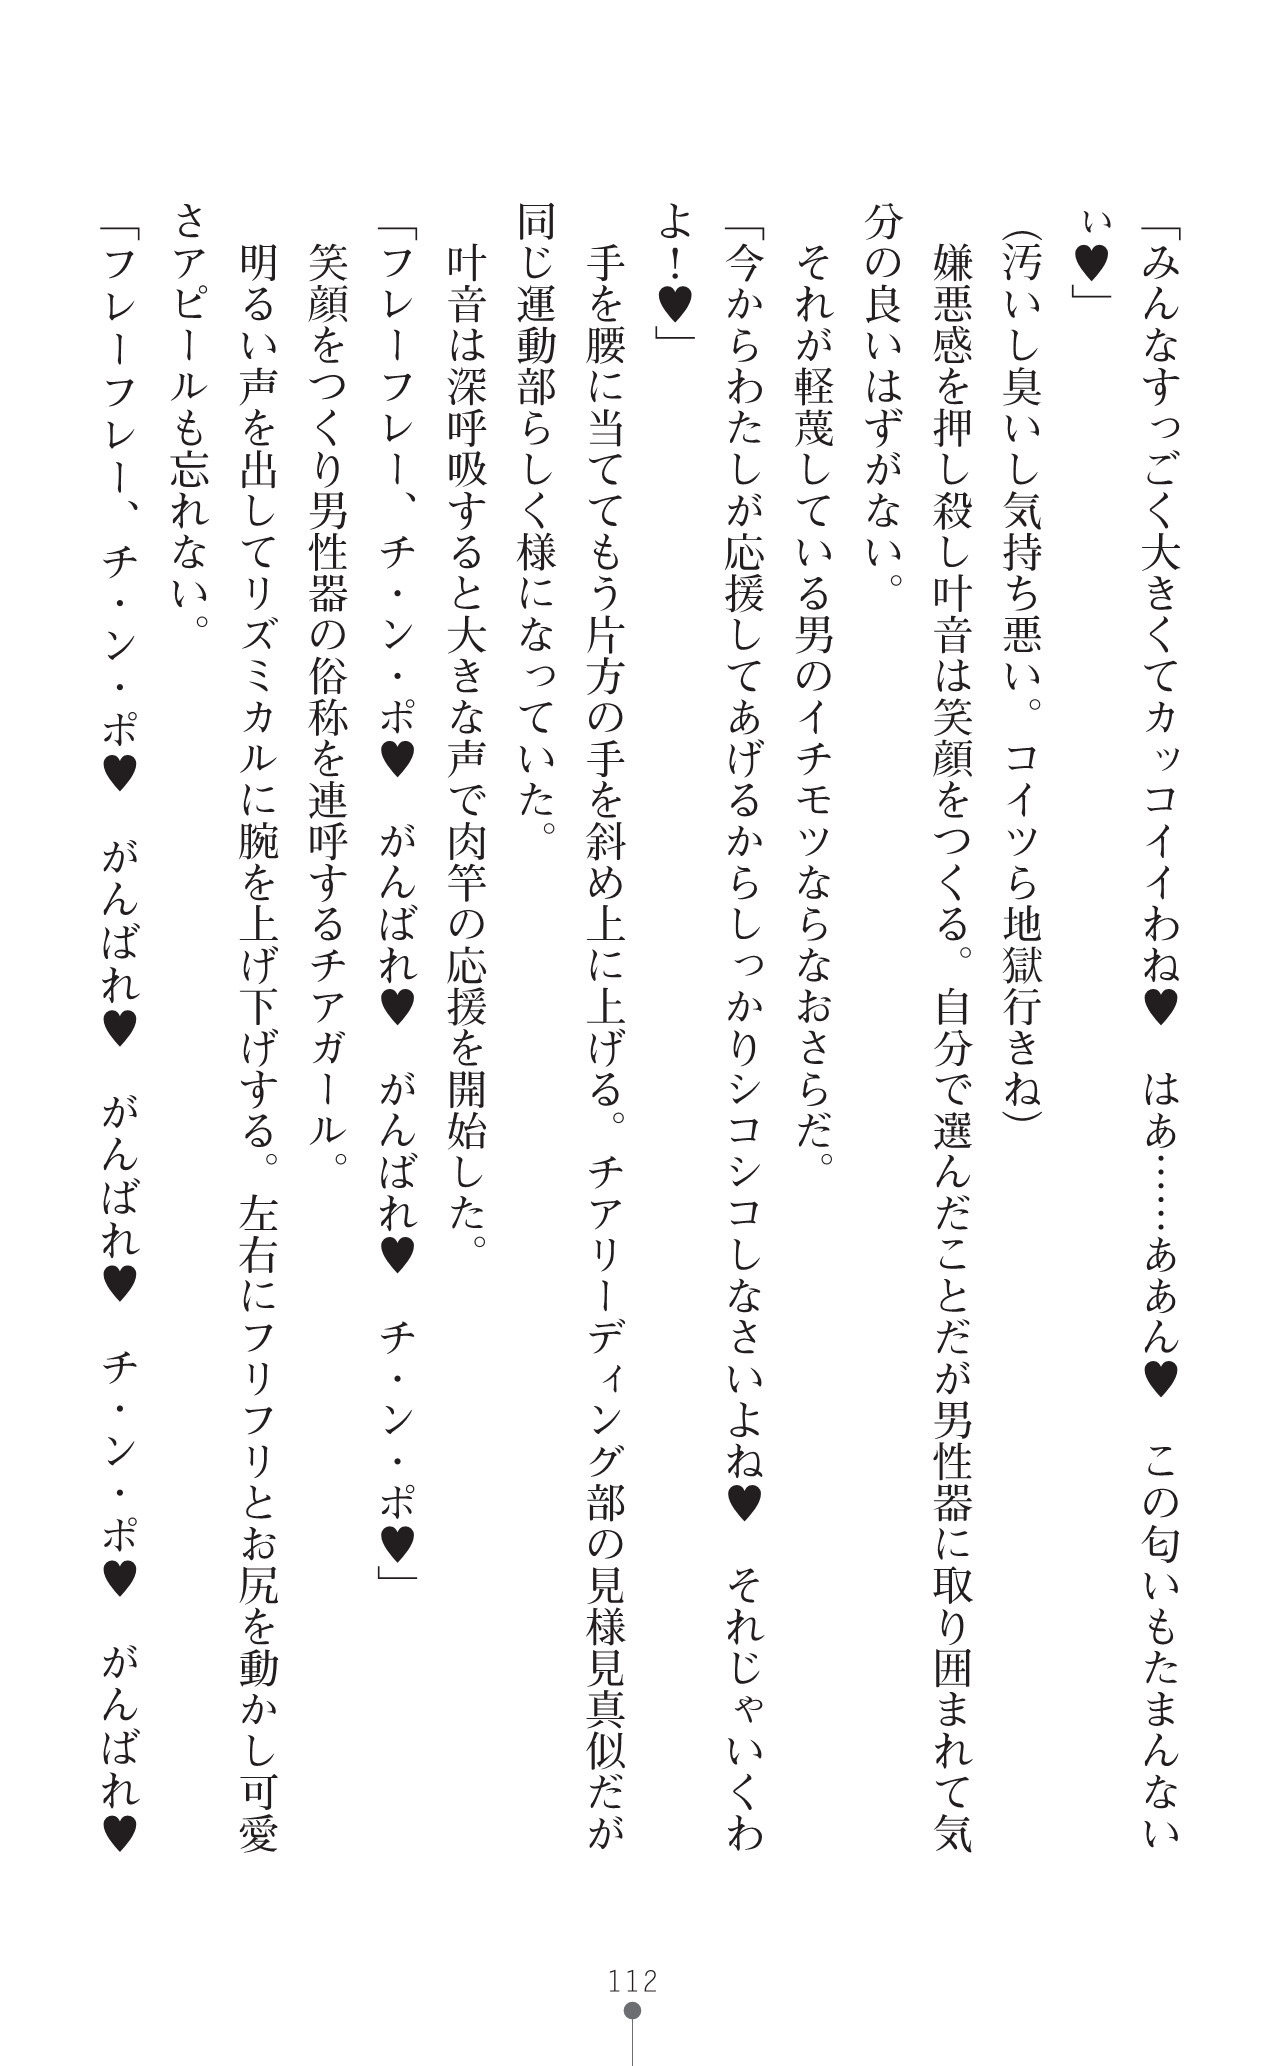 「みんなすっごく大きくてカッコイイわね♥　はあ……ああん♥　この匂いもたまんない
ぃ♥」
（汚いし臭いし気持ち悪い。コイツら地獄行きね）
　嫌悪感を押し殺し叶音は笑顔をつくる。自分で選んだことだが男性器に取り囲まれて気
分の良いはずがない。
　それが軽蔑している男のイチモツならなおさらだ。
「今からわたしが応援してあげるからしっかりシコシコしなさいよね♥　それじゃいくわ
よ！♥」
　手を腰に当ててもう片方の手を斜め上に上げる。チアリーディング部の見様見真似だが
同じ運動部らしく様になっていた。
　叶音は深呼吸すると大きな声で肉竿の応援を開始した。
「フレーフレー、チ・ン・ポ♥　がんばれ♥　がんばれ♥　チ・ン・ポ♥」
　笑顔をつくり男性器の俗称を連呼するチアガール。
　明るい声を出してリズミカルに腕を上げ下げする。左右にフリフリとお尻を動かし可愛
さアピールも忘れない。
「フレーフレー、チ・ン・ポ♥　がんばれ♥　がんばれ♥　チ・ン・ポ♥　がんばれ♥
112